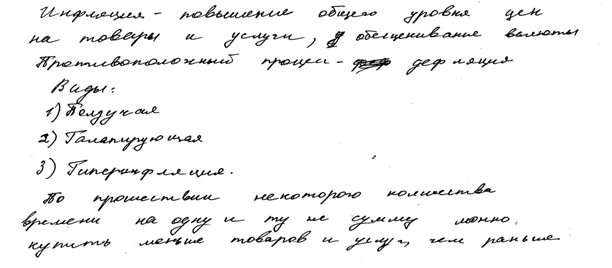 Инфляция - повышение общего уровня цен
на товары и услуги, обесценивание валюты
Противоположный процесс - дефляция
Виды:
1) Ползучая
2) Галапирующая
3) Гиперинфляция.
По прошествии некоторого количества
времени на одну и ту же сумму можно
купить меньше товаров и услуг, чем раньше